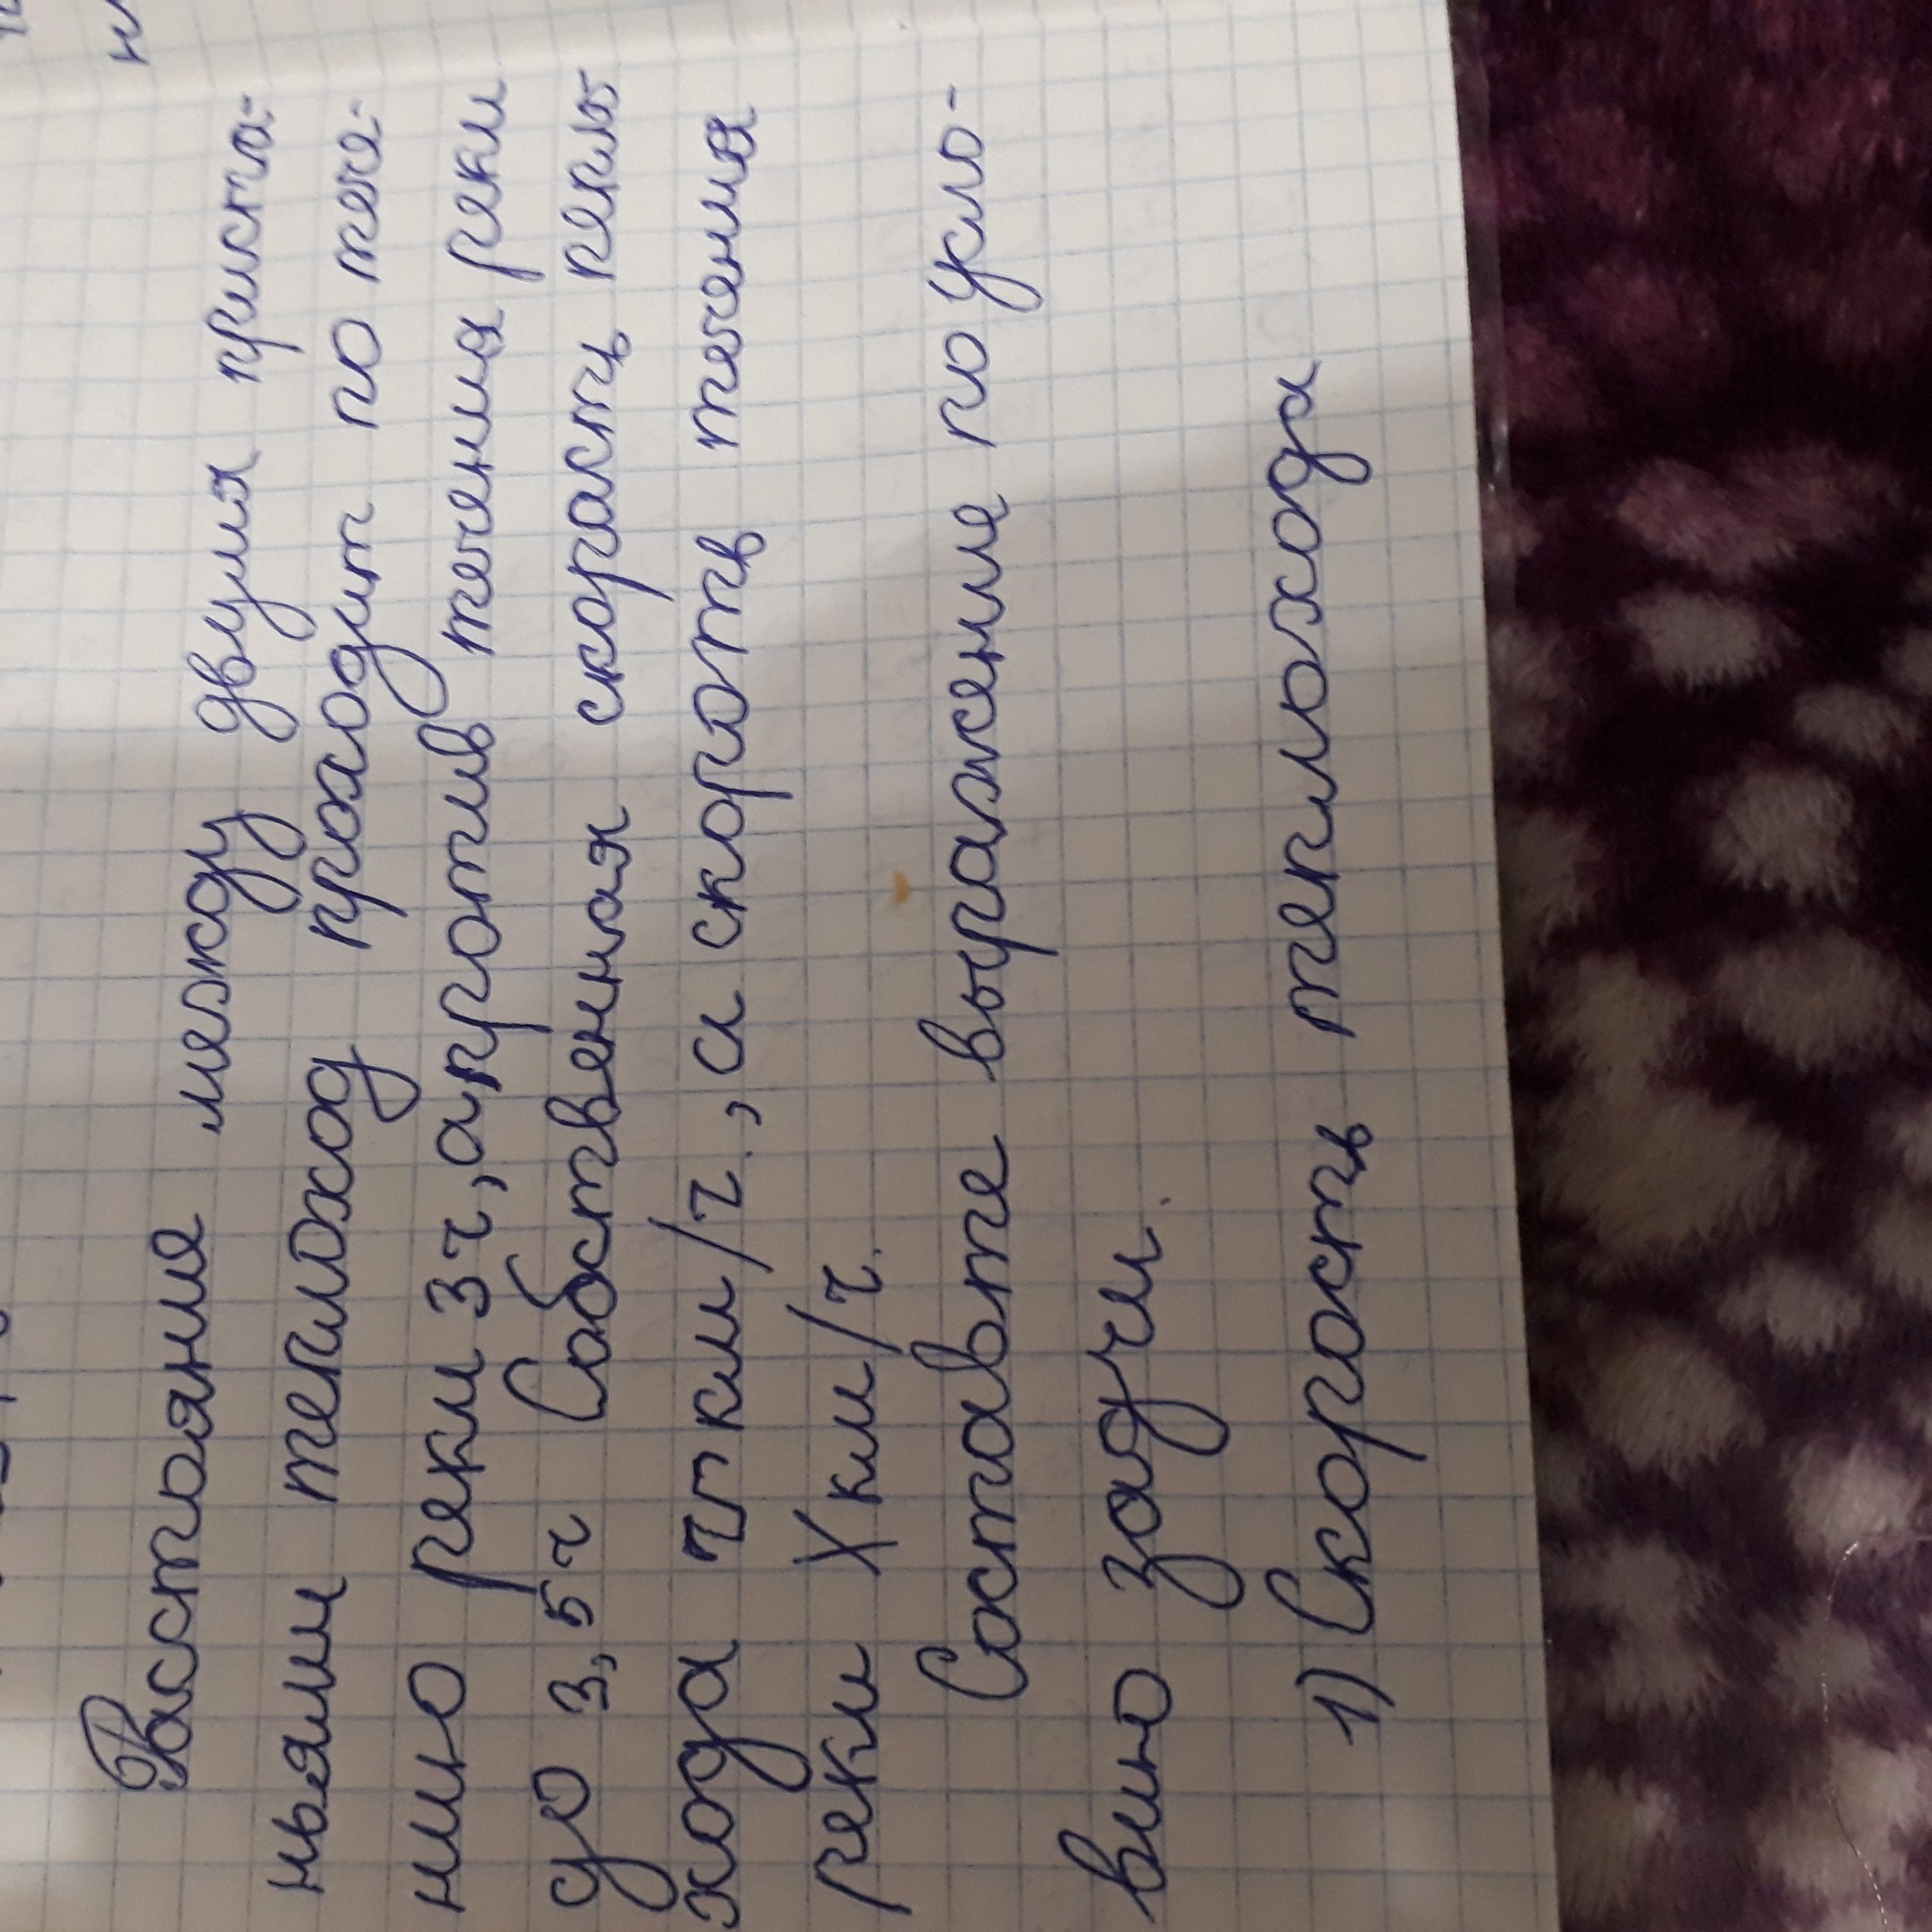 Расстояние между двумя приста=
ньями теплоход проходит по тече=
нию реки 3 ч, а против течения реки
до 3,5 ч Собственная скорасть тепло
хода чт км/ч., а скороть течения
реки X км/ч.
Составте выражение по усло-
вию задчи.
1) Скорость теплохода